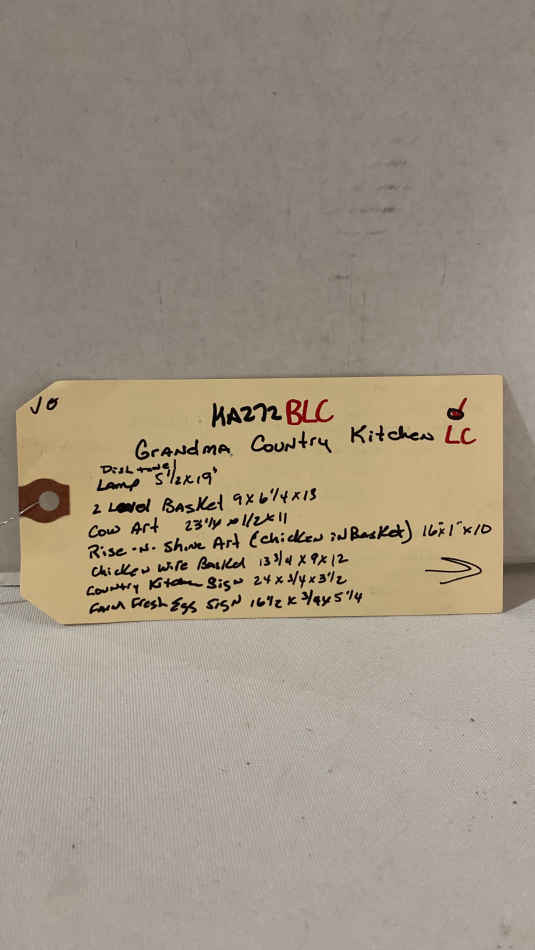 JO
KA272 BLC
GRANDMA Country Kitchen LC
Dish towel
Lamp 5 1/2 x 19"
2 Level Basket 9 x 6 1/4 x 13
Cow Art 23 1/4 x 1/2 x 11
Rise-N-Shine Art (chicken in Basket) 16" x 1" x 10
Chicken Wire Basket 13 3/4 x 9 x 12
Country Kitchen Sign 24 x 3/4 x 3 1/2
Farm Fresh Egg Sign 16 1/2 x 3/4 x 5 1/4